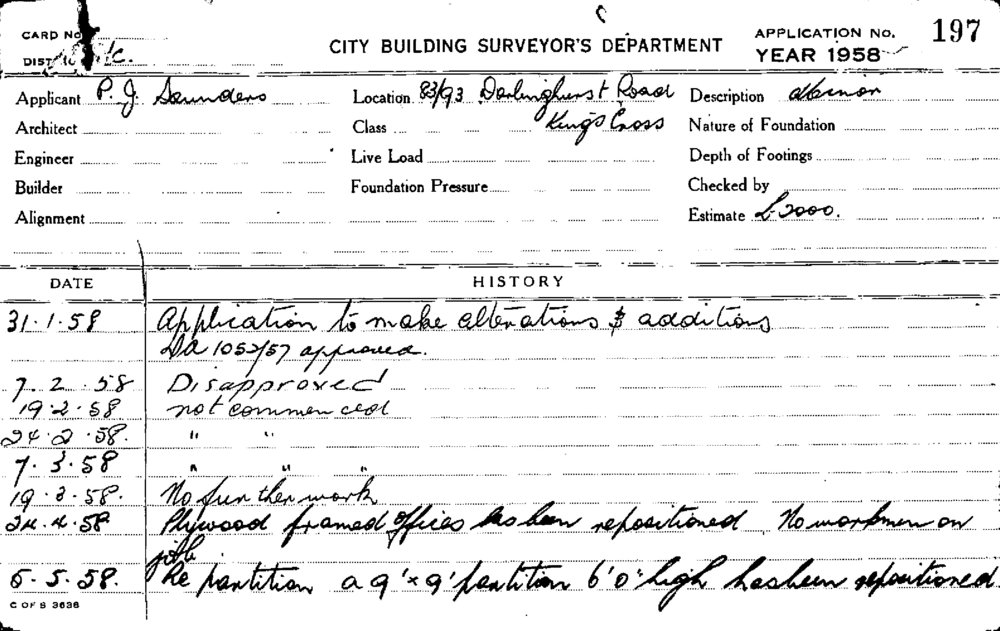 CARD No
CITY BUILDING SURVEYOR'S DEPARTMENT
APPLICATION No. 197
YEAR 1958
Applicant P. J. Saunders
Location 83/93 Darlinghurst Road
Description
Architect
Class Kings Cross
Nature of Foundation
Engineer
Live Load
Depth of Footings
Builder
Foundation Pressure
Checked by
Alignment
Estimate £2000.
DATE HISTORY
31.1.58 Application to make alterations & additions
DA 1052/57 approved.
7.2.58 Disapproved
19.2.58 not commenced
24.2.58. " "
7.3.58 " " "
19.3.58. No further work
24.4.58 Plywood framed offices has been repositioned No workmen on
job
6.5.58. Re partition a 9'x9' partition 6'0" high has been repositioned.
C OF S 3636